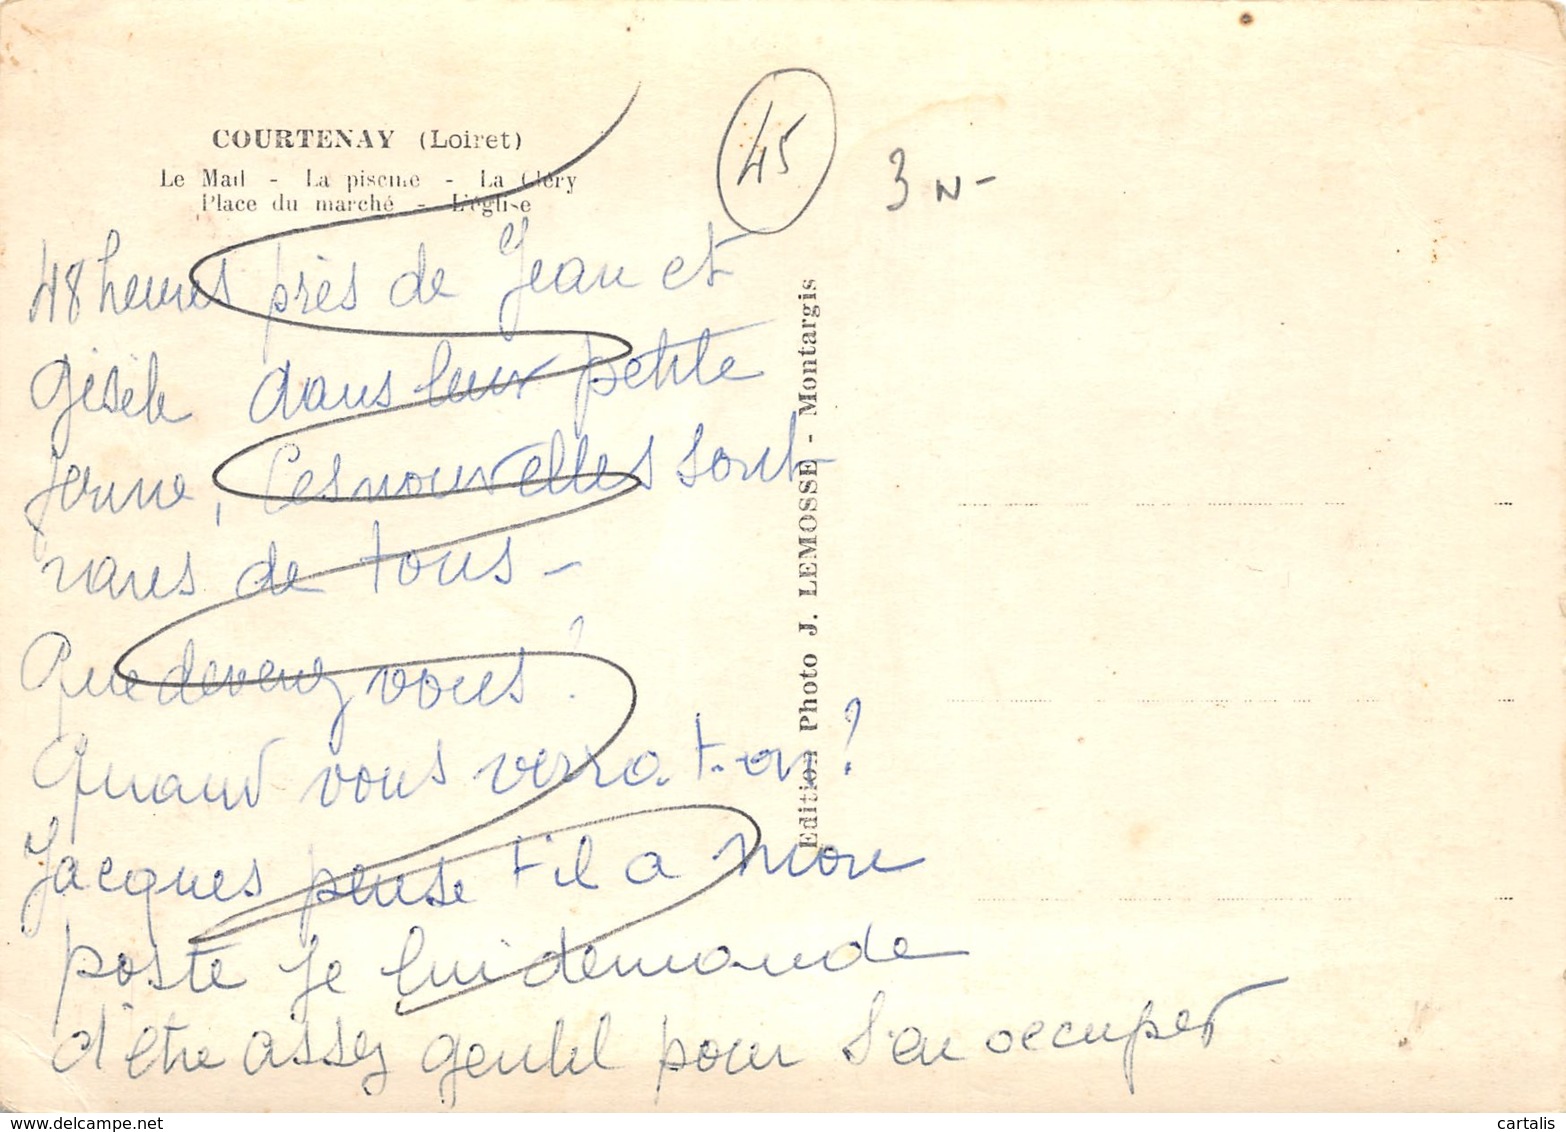 COURTENAY (Loiret)
Le Mail - La piscine - La Cléry
Place du marché - L'église
45
3 N-
48 heures près de Jean et
Gisèle dans leur petite
ferme, Les nouvelles sont
rares de tous -
Que devenez vous ?
Quand vous verra-t-on ?
Jacques pense t'il a mon
poste je lui demande
d'etre assez gentil pour s'en occuper
Edition Photo J. LEMOSSE - Montargis
www.delcampe.net
cartalis